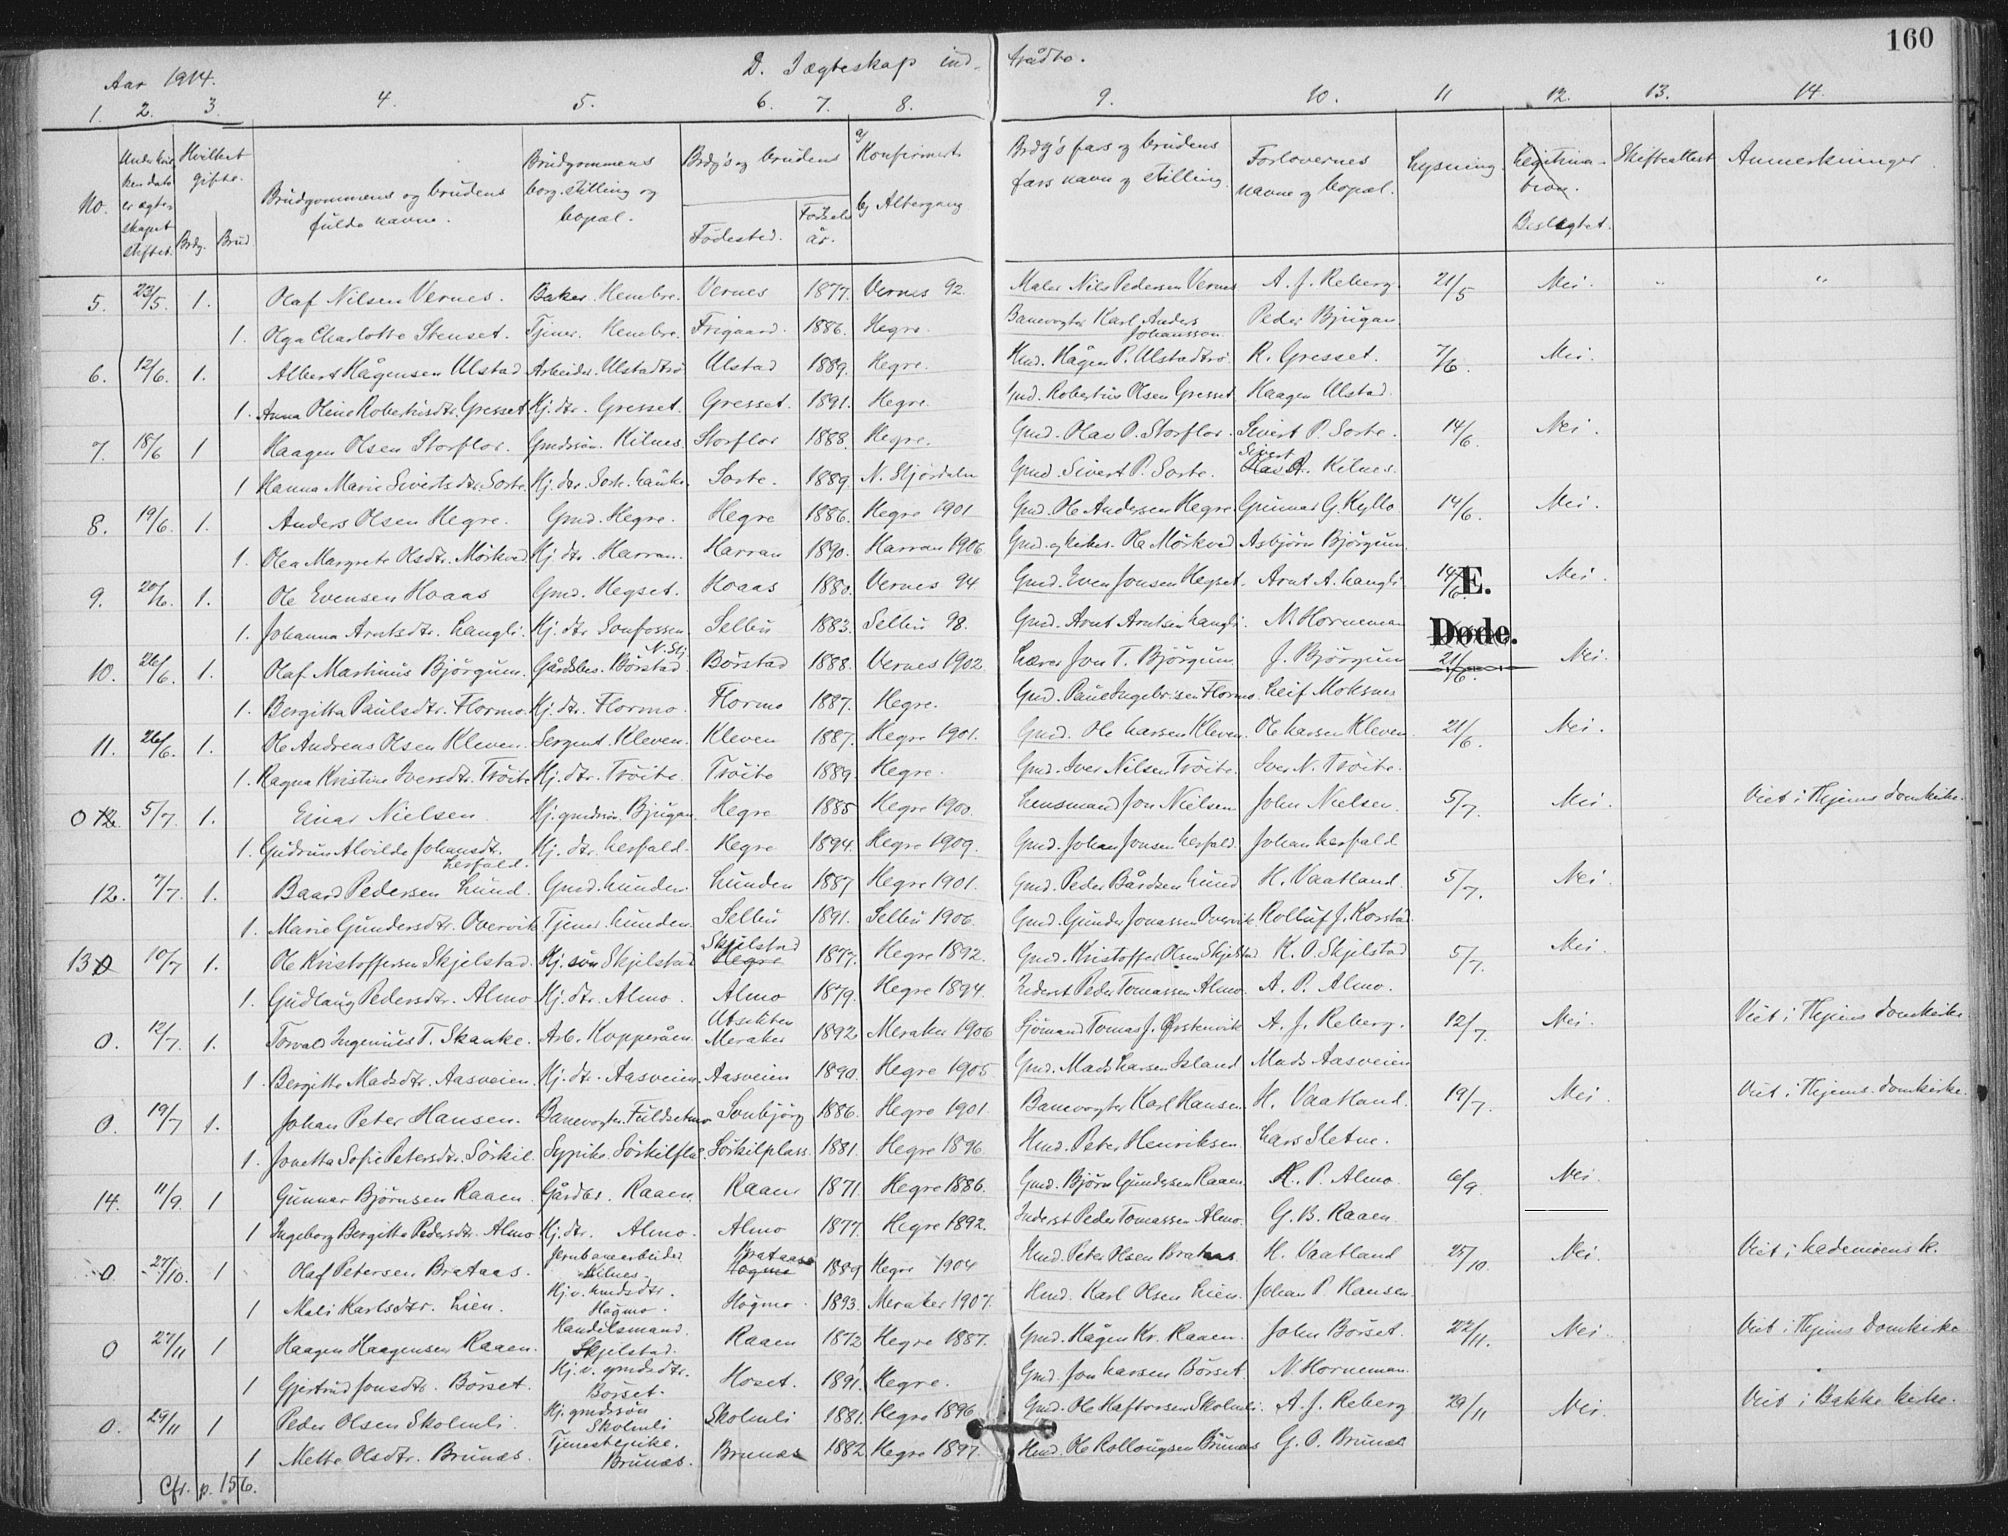 160
Aar 1914. D. Ægteskap ind- trådte.
1. 2. 3. 4. 5. 6. 7. 8. 9. 10. 11 12. 13. 14.
No. Brudgommens og brudens fulde navne. Brudgommens borg. stilling og bopæl. Brdg's og brudens Fødested. Fødsels år. a/ Konfirmert b/ Altergang Brdg's far og brudens fars navne og stilling. Forlovernes navne og bopæl. Lysning. Legitimation. Beslegtet. Skifteattest Anmerkninger
Hvilket gifte. Brdg. Brud
5. 23/5. 1. Olaf Nilsen Vernes. Baker. Hembre. Vernes 1877. Vernes 92. Maler Nils Pedersen Vernes A. J. Reberg. 21/5 Nei. " "
1. Olga Charlotte Stenset. Tjener. Hembre. Frigaard. 1886. Hegre. Banevogter Karl Anders Johansson Peder Bjugan
6. 12/6. 1. Albert Hågensen Ulstad Arbeider. Ulstadtrø Ulstad 1889. Hegre. Hmd. Hågen P. Ulstadtrø. R. Gresset. 7/6. Nei.
1. Anna Oline Robertusdtr. Gresset Hj. dtr. Gresset. Gresset. 1891. Hegre. Gmd. Robertus Olsen Gresset Haagen Ulstad.
7. 18/6 1 Haagen Olsen Storflor. Gmdssøn. Kilnes Storflor 1888. Hegre. Gmd. Olav O. Storflor. Sivert P. Sorte. 14/6. Nei.
1 Hanna Marie Sivertsdtr. Sorte. Sorte. 1889 N. Stjørdalen Gmd. Sivert P. Sorte. Sivert Kilnes.
8. 19/6. 1. Anders Olsen Hegre. Gmd. Hegre. Hegre 1886. Hegre 1901 Gmd. Ole Andersen Hegre. Gunnar G. Kyllo 14/6. Nei.
1. Olea Margrete Olsdtr. Mørkved Hj. dtr. Harran. Harran 1890. Harran 1906 Gmd. og kirkes. Ole Mørkved Asbjørn Bjørgum.
9. 20/6. 1. Ole Evensen Hoaas Gmd. Hegset. Hoaas 1880. Vernes 94. Gmd. Even Jonsen Hegset. Arnt A. Langli 14/6. Nei.
E.
1. Johanna Arntsdtr. Langli. Hj. dtr Sonfossen. N. Stj Selbu 1883. Selbu 98. Gmd. Arnt Arntsen Langli. N. Horneman
Døde.
10. 26/6. 1. Olaf Martinus Bjørgum. Gårdbes. Børstad. Børstad 1888. Vernes 1902. Lærer Jon T. Bjørgum. J. Bjørgum 21/6. Nei.
1. Bergitta Paulsdtr. Flormo. Hj. dtr. Flormo. Flormo 1887. Hegre. Gmd. Paul Ingebrigtsen Flormo. Leif Moksnes
11. 26/6. 1. Ole Andreas Olsen Kleven. Sergeant. Kleven. Kleven 1887. Hegre 1901. Gmd. Ole Larsen Kleven. Ole Larsen Kleven. 21/6. Nei.
1. Ragna Kristine Iversdtr. Trøite Hj. dtr. Trøite. Trøite 1889. Hegre. Gmd. Iver Nilsen Trøite. Iver N. Trøite.
0 12. 5/7. 1. Einar Nielsen Hj. gmdssøn. Bjugan Hegre 1885 Hegre 1900. Lensmand Jon Nielsen. John Nielsen. 5/7. Nei. Viet i Thjems Domkirke.
1. Gudrun Alvilde Johansdtr. Lerfald. Hj. dtr. Lerfald. Hegre 1894. Hegre 1909. Gmd. Johan Jonsen Lerfald. Johan Lerfald
12. 7/7. 1. Baard Pedersen Lund. Gmd. Lunden. Lunden 1887 Hegre 1901. Gmd. Peder Bårdsen Lund H. Vaatland. 5/7. Nei.
1. Marie Gundersdtr. Overvik Tjener. Lunden. Selbu 1891. Selbu 1906. Gmd. Gunder Jonassen Overvik. Rolluf J. Korstad
13 0 10/7 1. Ole Kristoffersen Skjelstad. Hj. søn Skjelstad Skjelstad Hegre 1877. Hegre 1892. Gmd. Kristoffer Olsen Skjelstad K. O. Skjelstad 5/7. Nei.
1. Gudlaug Pedersdtr. Almo Hj. dtr. Almo. Almo 1879. Hegre 1894. Inderst Peder Tomassen Almo. A. P. Almo.
0. 12/7. 1. Torvald Ingenius T. Skanke. Arb. Kopperåen. Utsikten Meraker 1892 Meraker 1906 Sjømand Tomas J. Ørstenvik A. J. Reberg. 12/7. Nei. Viet i Thjems Domkirke
1. Bergitte Madsdtr. Aasveien. Hj. dtr. Aasveien. Aasveien 1890. Hegre 1905. Gmd. Mads Larsen Island Mads Aasveien
0. 19/7 1. Johan Peter Hansen. Banevogter. Fuldsetmo Sonbjørg 1886. Hegre 1901 Banevogter Karl Hansen. H. Vaatland. 19/7. Nei. Viet i Thjems. Domkirke.
1. Jonetta Sofie Petersdtr. Sørkil. Sypike. Sørkilplass. 1881. Hegre 1896. Hmd. Peter Henriksen. Lars Sletne.
14. 11/9. 1 Gunnar Bjørnsen Raaen. Gårdbr. Raaen. Raaen 1871 Hegre 1886. Gmd. Bjørn Gundersen Raaen. P. Almo. 6/9. Nei.
1 Ingeborg Bergitta Pedersdtr. Almo. Hj. dtr. Almo. Almo 1877. Hegre 1892. Inderst Peder Tomassen Almo. G. B. Raaen.
0 27/10. 1 Olaf Petersen Brataas. Jernbanearbeider Kilnes. Brataas 1889 Hegre 1904 Hmd. Peter Olsen Brataas. H. Vaatland 25/10. Nei. Viet i Lademoens k.
1 Mali Karlsdtr. Lien. Hj. v. hmdsdtr. Høgmo. Høgmo. 1893. Meraker 1907. Hmd. Karl Olsen Lien. Johan P. Hansen.
0 27/11 1 Haagen Haagensen Raaen. Handelsmand. Skjelstad. Raaen 1872 Hegre 1887. Gmd. Hågen Kr. Raaen. John Børset. 22/11. Nei. Viet i Thjems Domkirke
1 Gjertrud Jonsdtr. Børset. Hj. v. gmdsdtr. Børset. Hoset. 1891. Hegre. Gmd. Jon Larsen Børset. N. Horneman.
0. 29/11 1 Peder Olsen Skolmli Hj. gmdssøn Skolmli Skolmli 1881. Hegre 1896. Gmd. Ole Haftorsen Skolmli. A. J. Reberg. 29/11 Nei. Viet i Bakke kirke.
1 Mette Olsdtr. Brunæs. Tjenestepike. Brunæs. Brunæs 1882 Hegre 1897. Hmd. Ole Rollougsen Brunæs G. O. Brunæs
Cfr. p. 156.